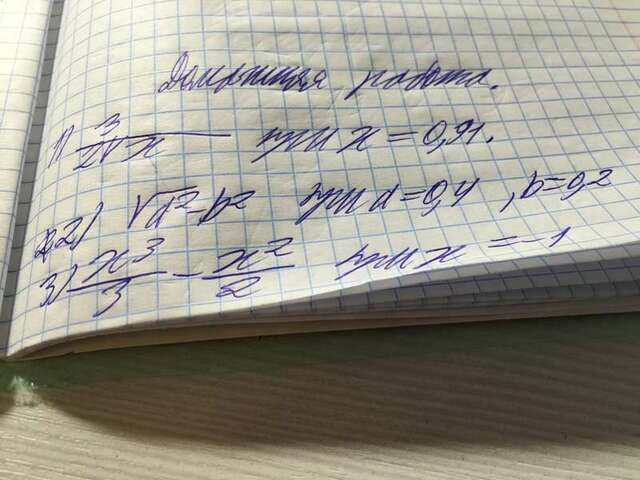 Домашняя работа.
1) 3/(2√x) при x = 0,91.
2) √a² - b² при a = 0,4, b = 0,2
3) x³/3 - x²/2 при x = -1